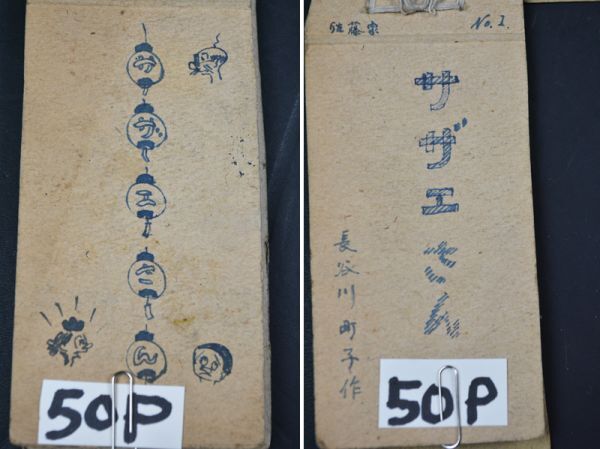 サザエさん
50P
佐藤家
No.1.
サザエさん
長谷川町子作
50P